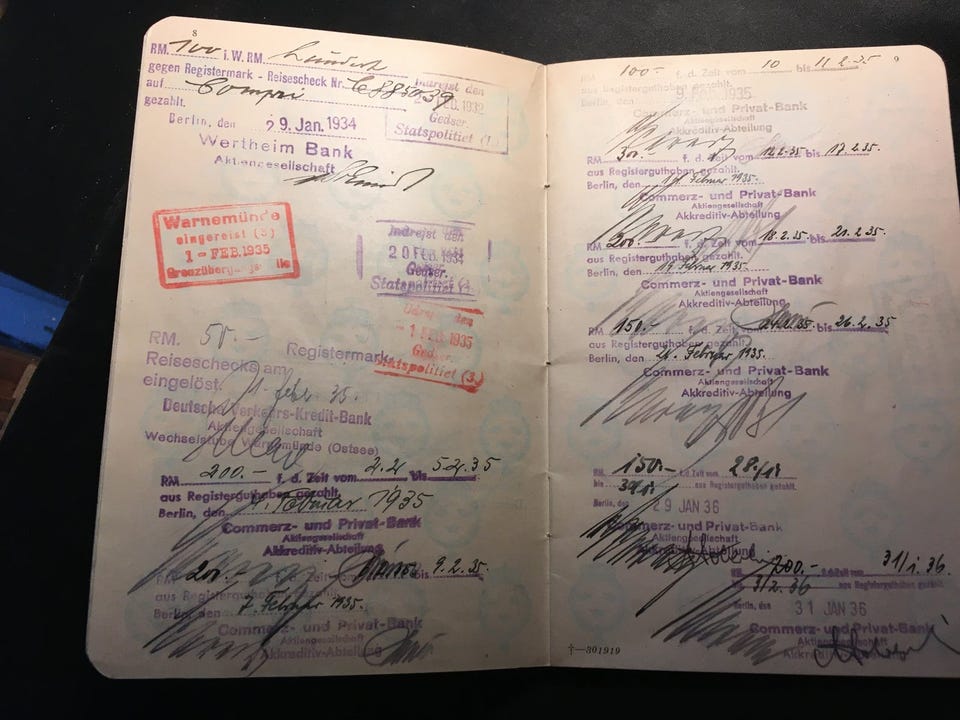 8
RM. 100 i. W. RM. hundert
gegen Registermark - Reisescheck Nr.
auf
gezahlt.
Berlin, den 29. Jan. 1934
Wertheim Bank
Aktiengesellschaft
Indrejst den
Gedser.
Statspolitiet (1)
Warnemünde
eingereist (3)
1 - FEB. 1935
Indrejst den
20 FEB. 1934
Gedser.
Statspolitiet
Udrejst den
- 1 FEB 1935
Gedser.
Statspolitiet (3)
RM. 50.- Registermark
Reiseschecks am
eingelöst. 1. Febr. 35.
Deutsche Verkehrs-Kredit-Bank
Aktiengesellschaft
Wechselstube Warnemünde (Ostsee)
RM 200.- f. d. Zeit vom bis 5.2.35
aus Registerguthaben gezahlt.
Berlin, den 4. Februar 1935
Commerz- und Privat-Bank
Aktiengesellschaft
Akkreditiv-Abteilung
200.- f. d. Zeit vom bis 9.2.35.
aus Registerguthaben gezahlt.
Berlin, den 7. Februar 1935.
Commerz- und Privat-Bank
Aktiengesellschaft
Akkreditiv-Abteilung
9
RM 100.- f. d. Zeit vom 10 bis 11.2.35
aus Registerguthaben gezahlt.
Berlin, den 9. FEB. 1935
Commerz- und Privat-Bank
Aktiengesellschaft
Akkreditiv-Abteilung
RM 300.- f. d. Zeit vom 12.2.35 bis 17.2.35.
aus Registerguthaben gezahlt.
Berlin, den Februar 1935.
Commerz- und Privat-Bank
Aktiengesellschaft
Akkreditiv-Abteilung
RM 200.- f. d. Zeit vom 18.2.35. bis 21.2.35.
aus Registerguthaben gezahlt.
Berlin, den Februar 1935.
Commerz- und Privat-Bank
Aktiengesellschaft
Akkreditiv-Abteilung
RM 150.- f. d. Zeit vom bis 26.2.35
aus Registerguthaben gezahlt.
Berlin, den Februar 1935.
Commerz- und Privat-Bank
Aktiengesellschaft
Akkreditiv-Abteilung
RM. 150.- f. d. Zeit vom
bis aus Registerguthaben gezahlt.
Berlin, den 29 JAN 36
Commerz- und Privat-Bank
Aktiengesellschaft
RM. f. d. Zeit vom 31/1. 36.
bis 3/2. 36 aus Registerguthaben gezahlt.
Berlin, den 31 JAN 36
Commerz- und Privat-Bank
Aktiengesellschaft
†—301919